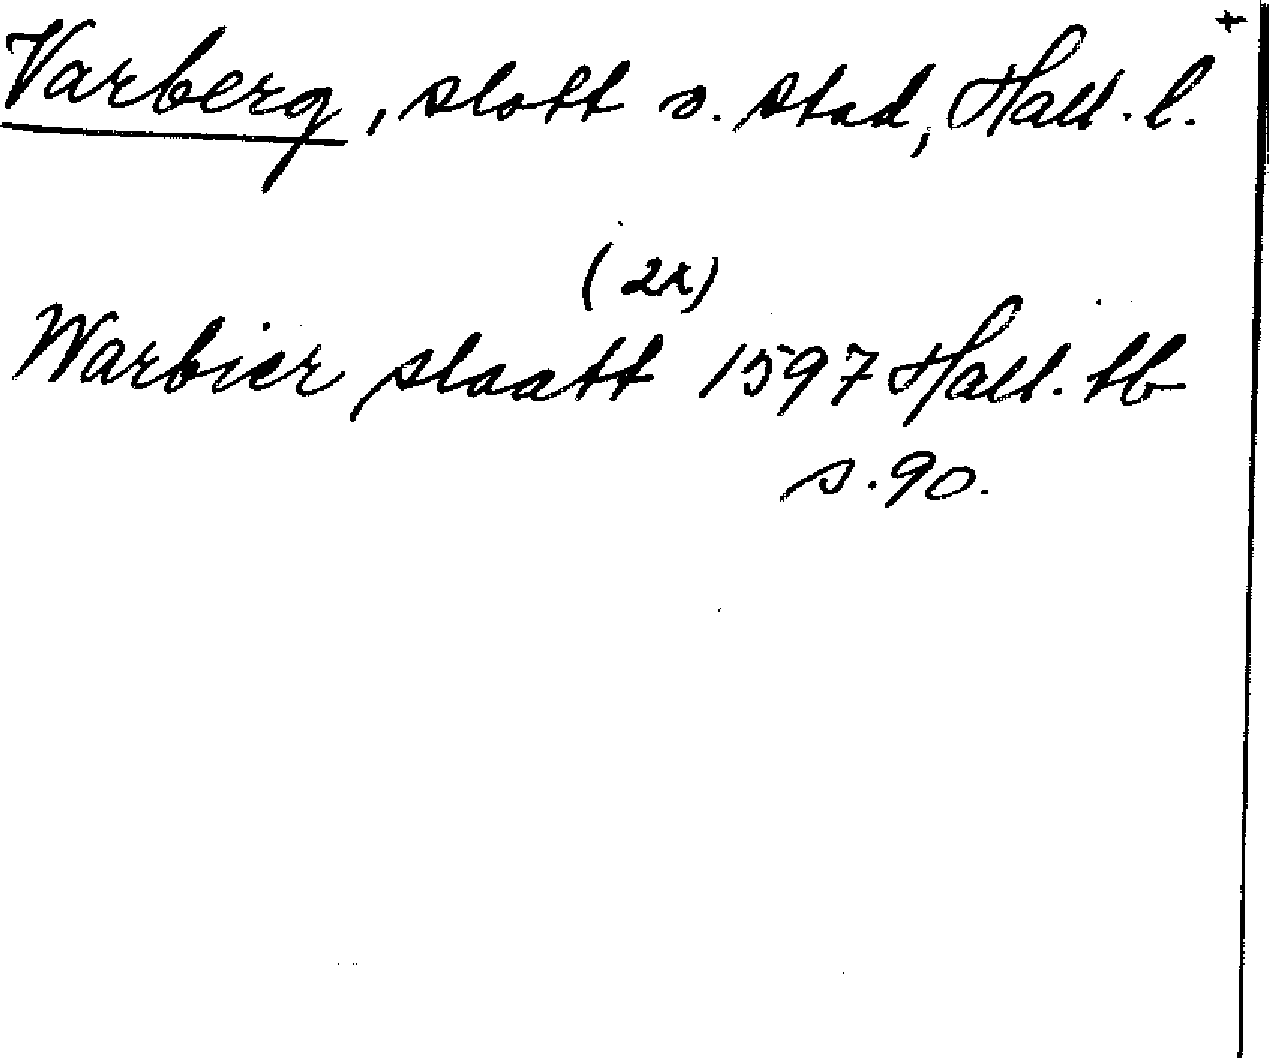 +
Varberg, slott o. stad, Hall. l.
(2r)
Warbier slaatt 1597 Hall. tb
s. 90.